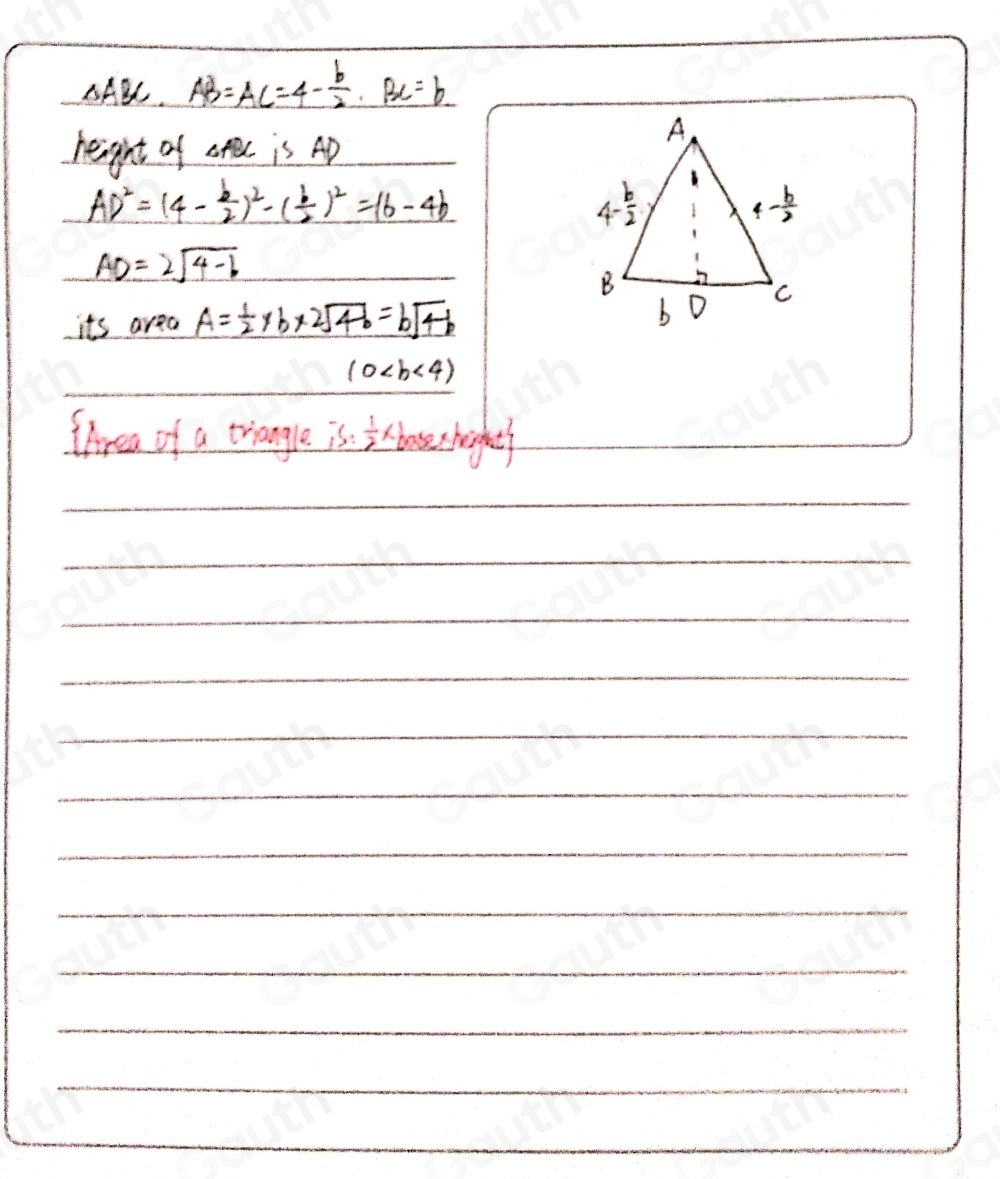 △ABC. AB=AC=4-b/2. BC=b
height of △ABC is AD
AD²=(4-b/2)²-(b/2)²=16-4b
AD=2√4-b
its area A=1/2×b×2√4-b=b√4-b
(0<b<4)
{Area of a triangle is: 1/2×base×height}
A
4-b/2
4-b/2
B
b
D
C
Gauth